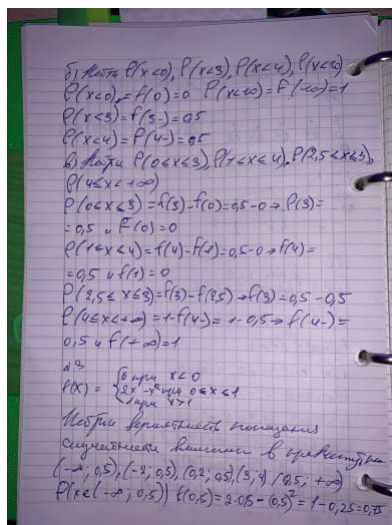 б) Найти P(x<0), P(x<3), P(x<4), P(x<10)
P(x<0) = f(0) = 0 P(x<10) = F(10) = 1
P(x<3) = f(3-) = 0,5
P(x<4) = P(4-) = 0,5
в) Найти P(0≤x≤3), P(1≤x≤4), P(2,5≤x≤3),
P(4≤x<+∞)
P(0≤x≤3) = f(3)-f(0) = 0,5-0 → P(3) =
= 0,5 и F(0) = 0
P(1≤x≤4) = f(4)-f(1) = 0,5-0 → f(4) =
= 0,5 и f(1) = 0
P(2,5≤x≤3) = f(3)-f(2,5) → f(3) = 0,5-0,5
P(4≤x<+∞) = 1-f(4-) = 1-0,5 → f(4-) =
0,5 и f(+∞) = 1
№3
f(x) = { 0 при x<0
2x-x² при 0≤x≤1
1 при x>1
вероятность попадания
случайной величины в
(-∞; 0,5), (-2; 0,5), (0,2; 0,5), (3; 4) (0,5; +∞)
P(x∈(-∞; 0,5)) f(0,5) = 2·0,5-(0,5)² = 1-0,25 = 0,75